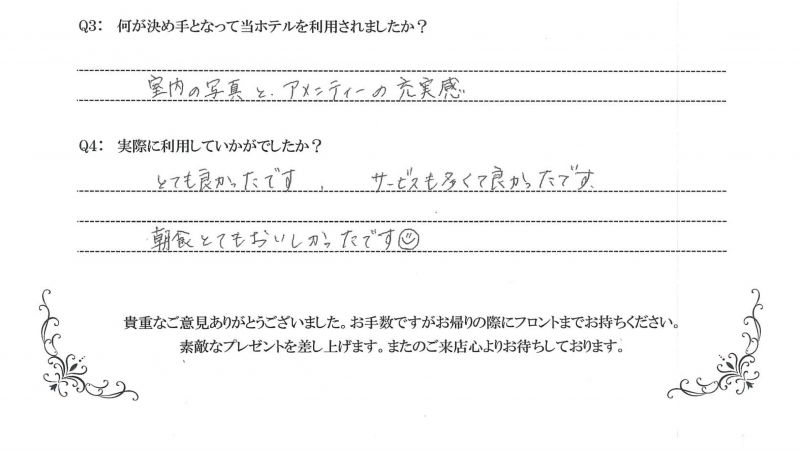 Q3: 何が決め手となって当ホテルを利用されましたか？
室内の写真と、アメニティーの充実感
Q4: 実際に利用していかがでしたか？
とても良かったです、 サービスも多くて良かったです。
朝食とてもおいしかったです☺
貴重なご意見ありがとうございました。お手数ですがお帰りの際にフロントまでお持ちください。
素敵なプレゼントを差し上げます。またのご来店心よりお待ちしております。